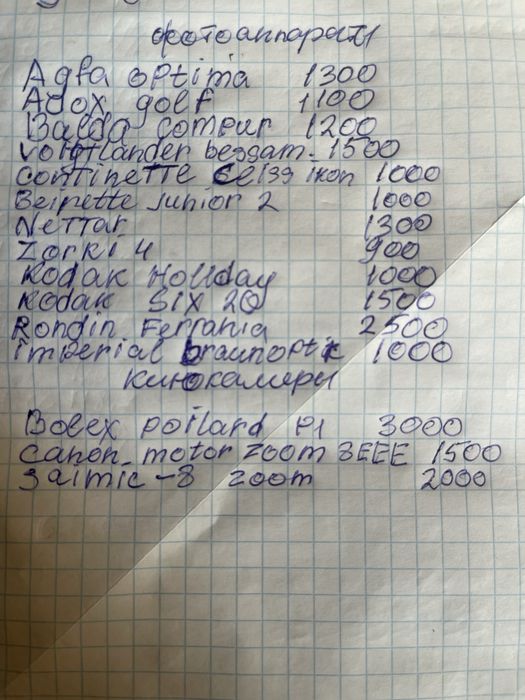 фотоаппараты
Agfa optima 1300
Adox golf 1100
Balda compur 1200
Voigtlander bessam. 1500
Continette Ceiss ikon 1000
Beirette junior 2 1000
Nettar 1300
Zorki 4 900
Kodak Holiday 1000
Kodak Six 20 1500
Rondin Ferrania 2500
imperial braunoptik 1000
Кинокамеры
Bolex pailard P1 3000
Canon motor zoom 8EEE 1500
zoom 2000